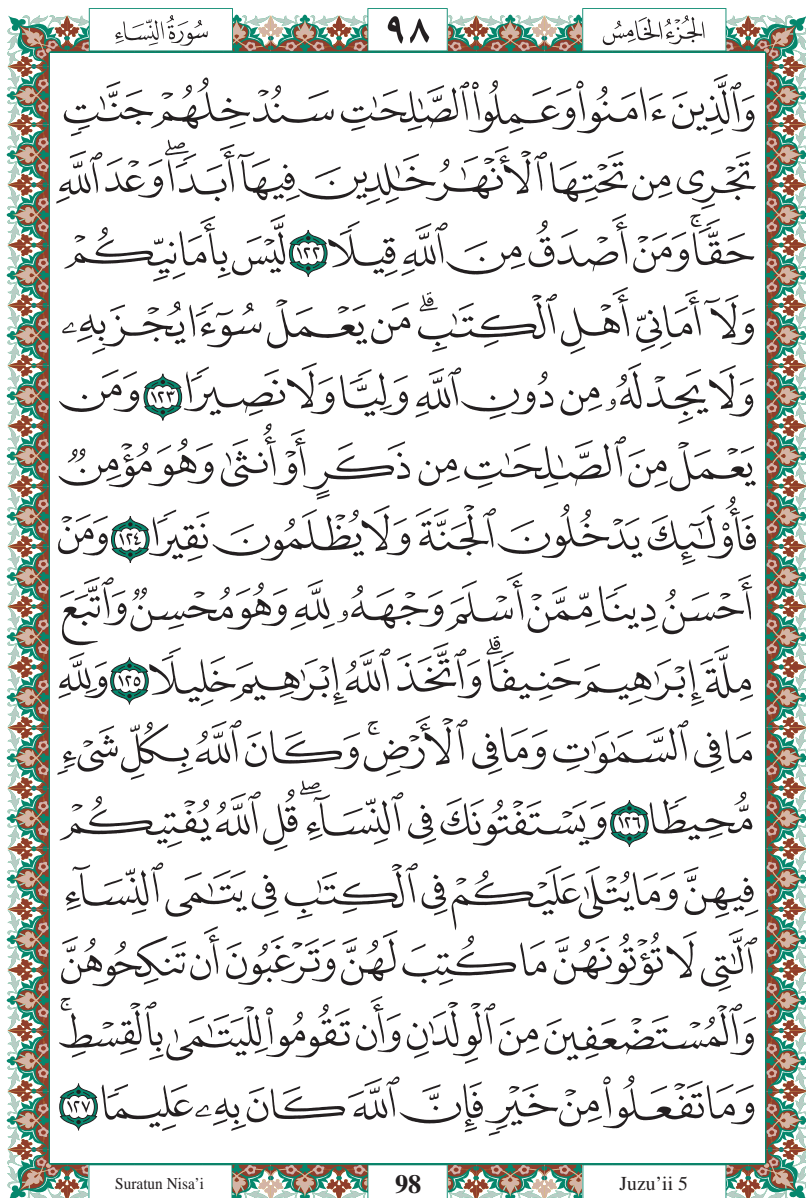 سُورَةُ النِّسَاءِ ٩٨ الجُزْءُ الخَامِسُ
وَٱلَّذِينَ ءَامَنُواْ وَعَمِلُواْ ٱلصَّٰلِحَٰتِ سَنُدْخِلُهُمْ جَنَّٰتٍ
تَجْرِى مِن تَحْتِهَا ٱلْأَنْهَٰرُ خَٰلِدِينَ فِيهَآ أَبَدًاۖ وَعْدَ ٱللَّهِ
حَقًّاۚ وَمَنْ أَصْدَقُ مِنَ ٱللَّهِ قِيلًا ١٢٢ لَّيْسَ بِأَمَانِيِّكُمْ
وَلَآ أَمَانِىِّ أَهْلِ ٱلْكِتَٰبِۗ مَن يَعْمَلْ سُوٓءًا يُجْزَ بِهِۦ
وَلَا يَجِدْ لَهُۥ مِن دُونِ ٱللَّهِ وَلِيًّا وَلَا نَصِيرًا ١٢٣ وَمَن
يَعْمَلْ مِنَ ٱلصَّٰلِحَٰتِ مِن ذَكَرٍ أَوْ أُنثَىٰ وَهُوَ مُؤْمِنٌ
فَأُوْلَٰٓئِكَ يَدْخُلُونَ ٱلْجَنَّةَ وَلَا يُظْلَمُونَ نَقِيرًا ١٢٤ وَمَنْ
أَحْسَنُ دِينًا مِّمَّنْ أَسْلَمَ وَجْهَهُۥ لِلَّهِ وَهُوَ مُحْسِنٌ وَٱتَّبَعَ
مِلَّةَ إِبْرَٰهِيمَ حَنِيفًاۗ وَٱتَّخَذَ ٱللَّهُ إِبْرَٰهِيمَ خَلِيلًا ١٢٥ وَلِلَّهِ
مَا فِى ٱلسَّمَٰوَٰتِ وَمَا فِى ٱلْأَرْضِۚ وَكَانَ ٱللَّهُ بِكُلِّ شَىْءٍ
مُّحِيطًا ١٢٦ وَيَسْتَفْتُونَكَ فِى ٱلنِّسَآءِۖ قُلِ ٱللَّهُ يُفْتِيكُمْ
فِيهِنَّ وَمَا يُتْلَىٰ عَلَيْكُمْ فِى ٱلْكِتَٰبِ فِى يَتَٰمَى ٱلنِّسَآءِ
ٱلَّٰتِى لَا تُؤْتُونَهُنَّ مَا كُتِبَ لَهُنَّ وَتَرْغَبُونَ أَن تَنكِحُوهُنَّ
وَٱلْمُسْتَضْعَفِينَ مِنَ ٱلْوِلْدَٰنِ وَأَن تَقُومُواْ لِلْيَتَٰمَىٰ بِٱلْقِسْطِۚ
وَمَا تَفْعَلُواْ مِنْ خَيْرٍ فَإِنَّ ٱللَّهَ كَانَ بِهِۦ عَلِيمًا ١٢٧
Suratun Nisa'i 98 Juzu'ii 5